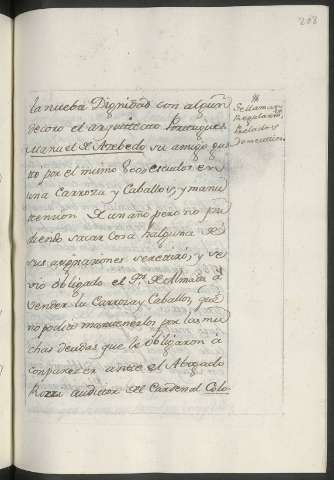 208
la nueba Dignidad con algun
decoro el arquitecto Portugues
Manuel de Azebedo su amigo gas
tó por el mismo 800 escudos en
una Carroza y Caballos, y manu
tencion de un año pero no pu
diendo sacar cosa halguna de
sus asignaciones se retiró, y se
vio obligado el Pr. de Almada á
vender la Carroza y Caballos, que
no podia mantenerlos, por las mu
chas deudas que le obligaron á
comparecer ante el Abogado
Rozzi auditor del Cardenal Colo
Se llaman
Regulares,
Prelados
Domesticos.